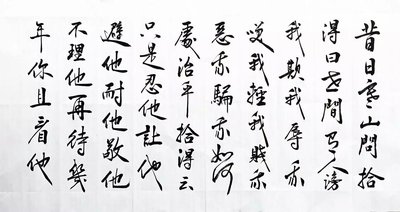 昔日寒山問拾
得曰世間有人謗
我欺我辱我
笑我輕我賤我
惡我騙我如何
處治乎拾得云
只是忍他讓他
避他耐他敬他
不理他再待幾
年你且看他